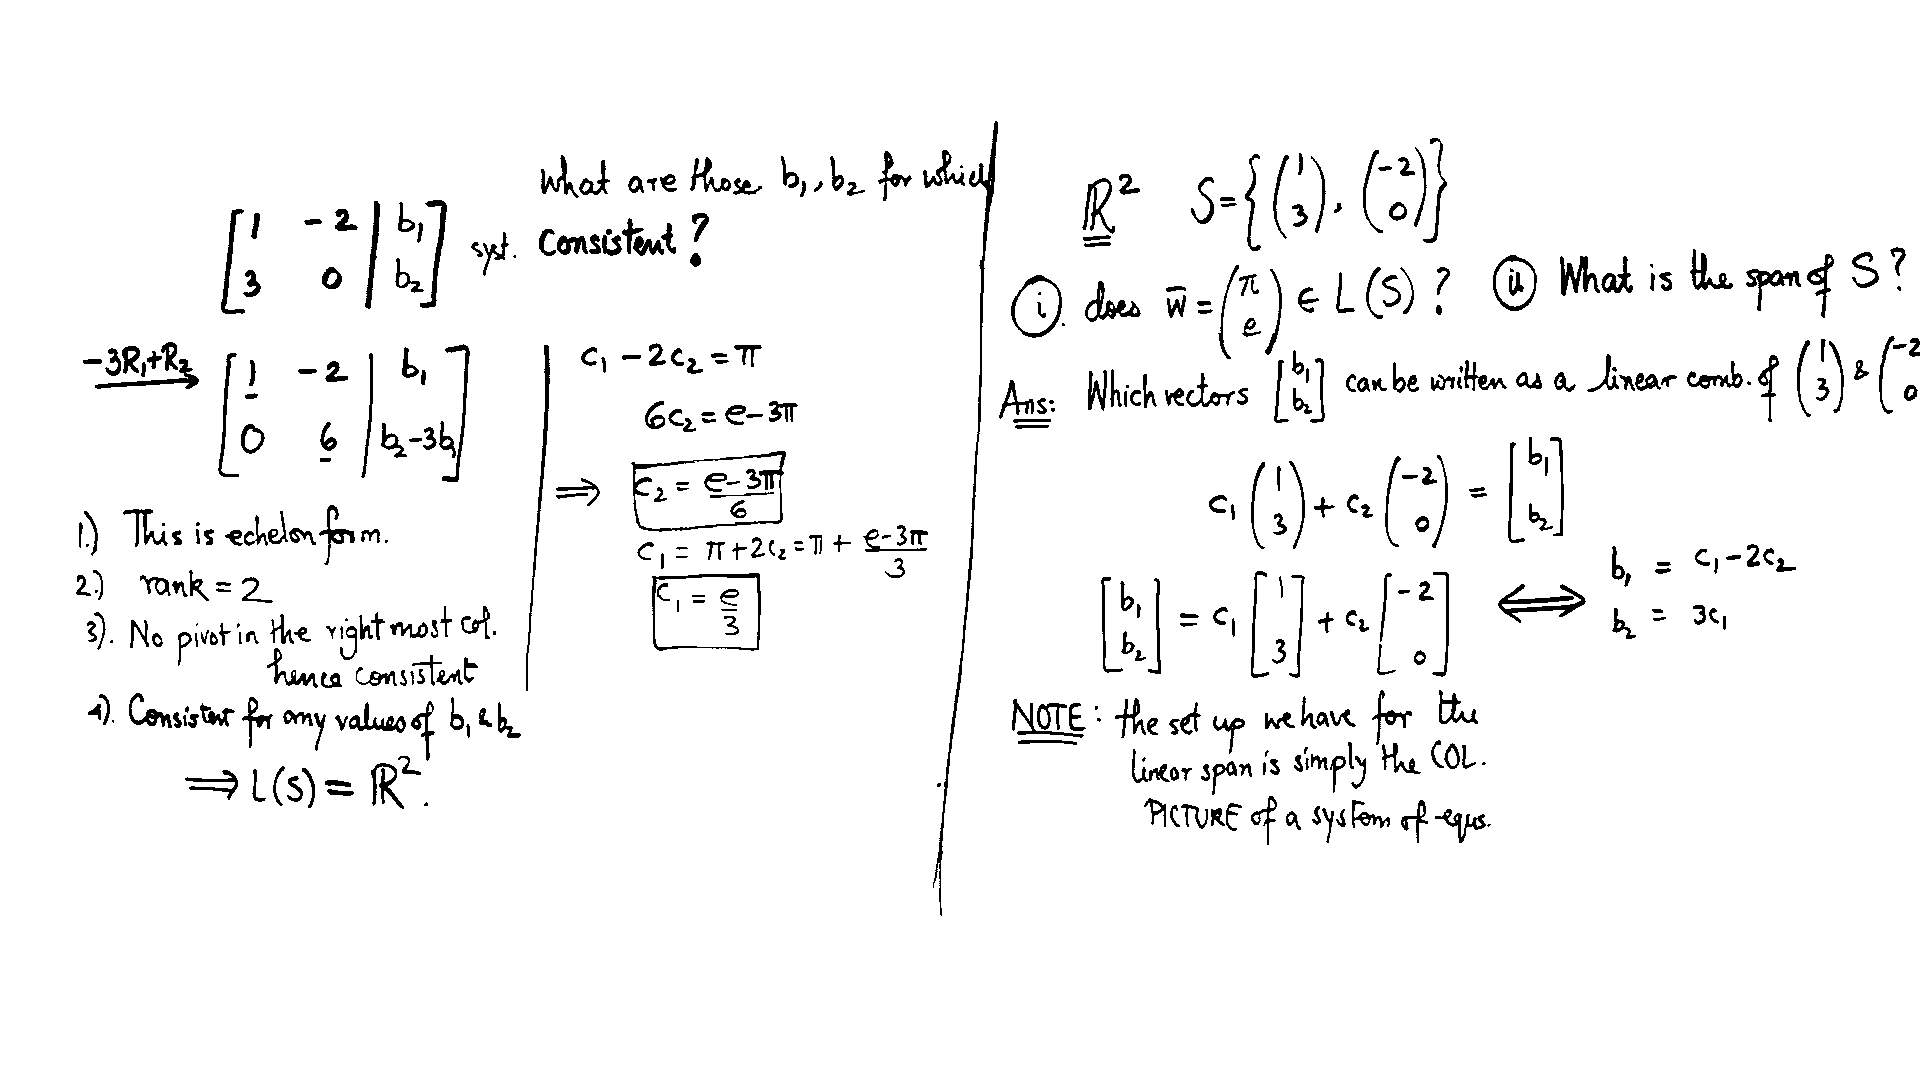 What are those b₁, b₂ for which
[1 -2 | b₁
3 0 | b₂] syst. Consistent?
-3R₁+R₂ → [1 -2 | b₁
0 6 | b₂-3b₁]
1.) This is echelon form.
2.) rank = 2
3). No pivot in the right most col.
hence consistent
4). Consistent for any values of b₁ & b₂
⟹ L(S) = ℝ².
c₁ - 2c₂ = π
6c₂ = e - 3π
⟹ c₂ = (e-3π)/6
c₁ = π + 2c₂ = π + (e-3π)/3
c₁ = e/3
ℝ² S = {(1 3), (-2 0)}
(i). does w̅ = (π e) ∈ L(S)? (ii) What is the span of S?
Ans: Which vectors [b₁ b₂] can be written as a linear comb. of (1 3) & (-2 0
c₁ (1 3) + c₂ (-2 0) = [b₁ b₂]
[b₁ b₂] = c₁ [1 3] + c₂ [-2 0] ⟺ b₁ = c₁ - 2c₂
b₂ = 3c₁
NOTE: the set up we have for the
linear span is simply the COL.
PICTURE of a system of equs.